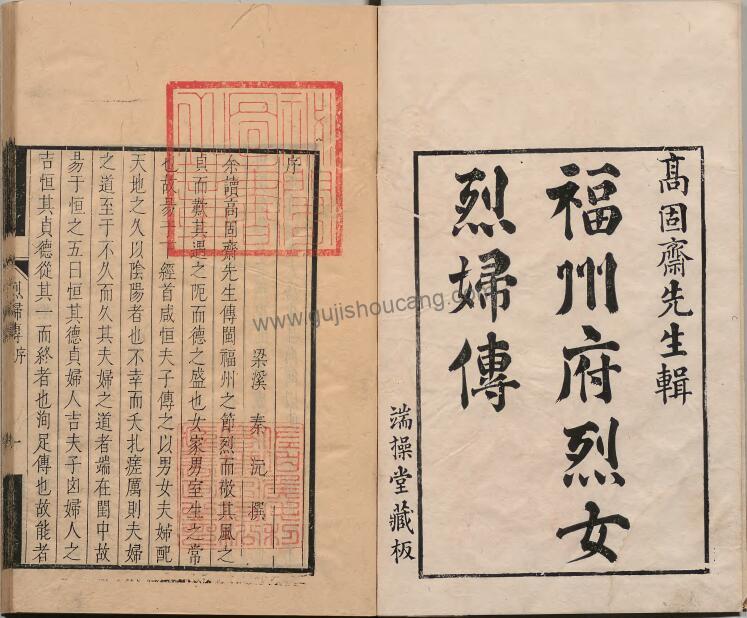 高固齋先生輯
福州府烈女
烈婦傳
端操堂藏板
序
梁溪秦沅撰
余讀高固齋先生傳閩福州之節烈而敬其風之
貞而歎其遇之阨而德之盛也女家男室生之常
也故易下經首咸恒夫子傳之以男女夫婦配
天地之久以陰陽者也不幸而夭扎瘥厲則夫婦
之道至于不久而久其夫婦之道者端在閨中故
昜于恒之五曰恒其德貞婦人吉夫子凶婦人之
吉恒其貞德從其一而終者也洵足傳也故能者
烈婦傳 序 一
www.gujishoucang.com